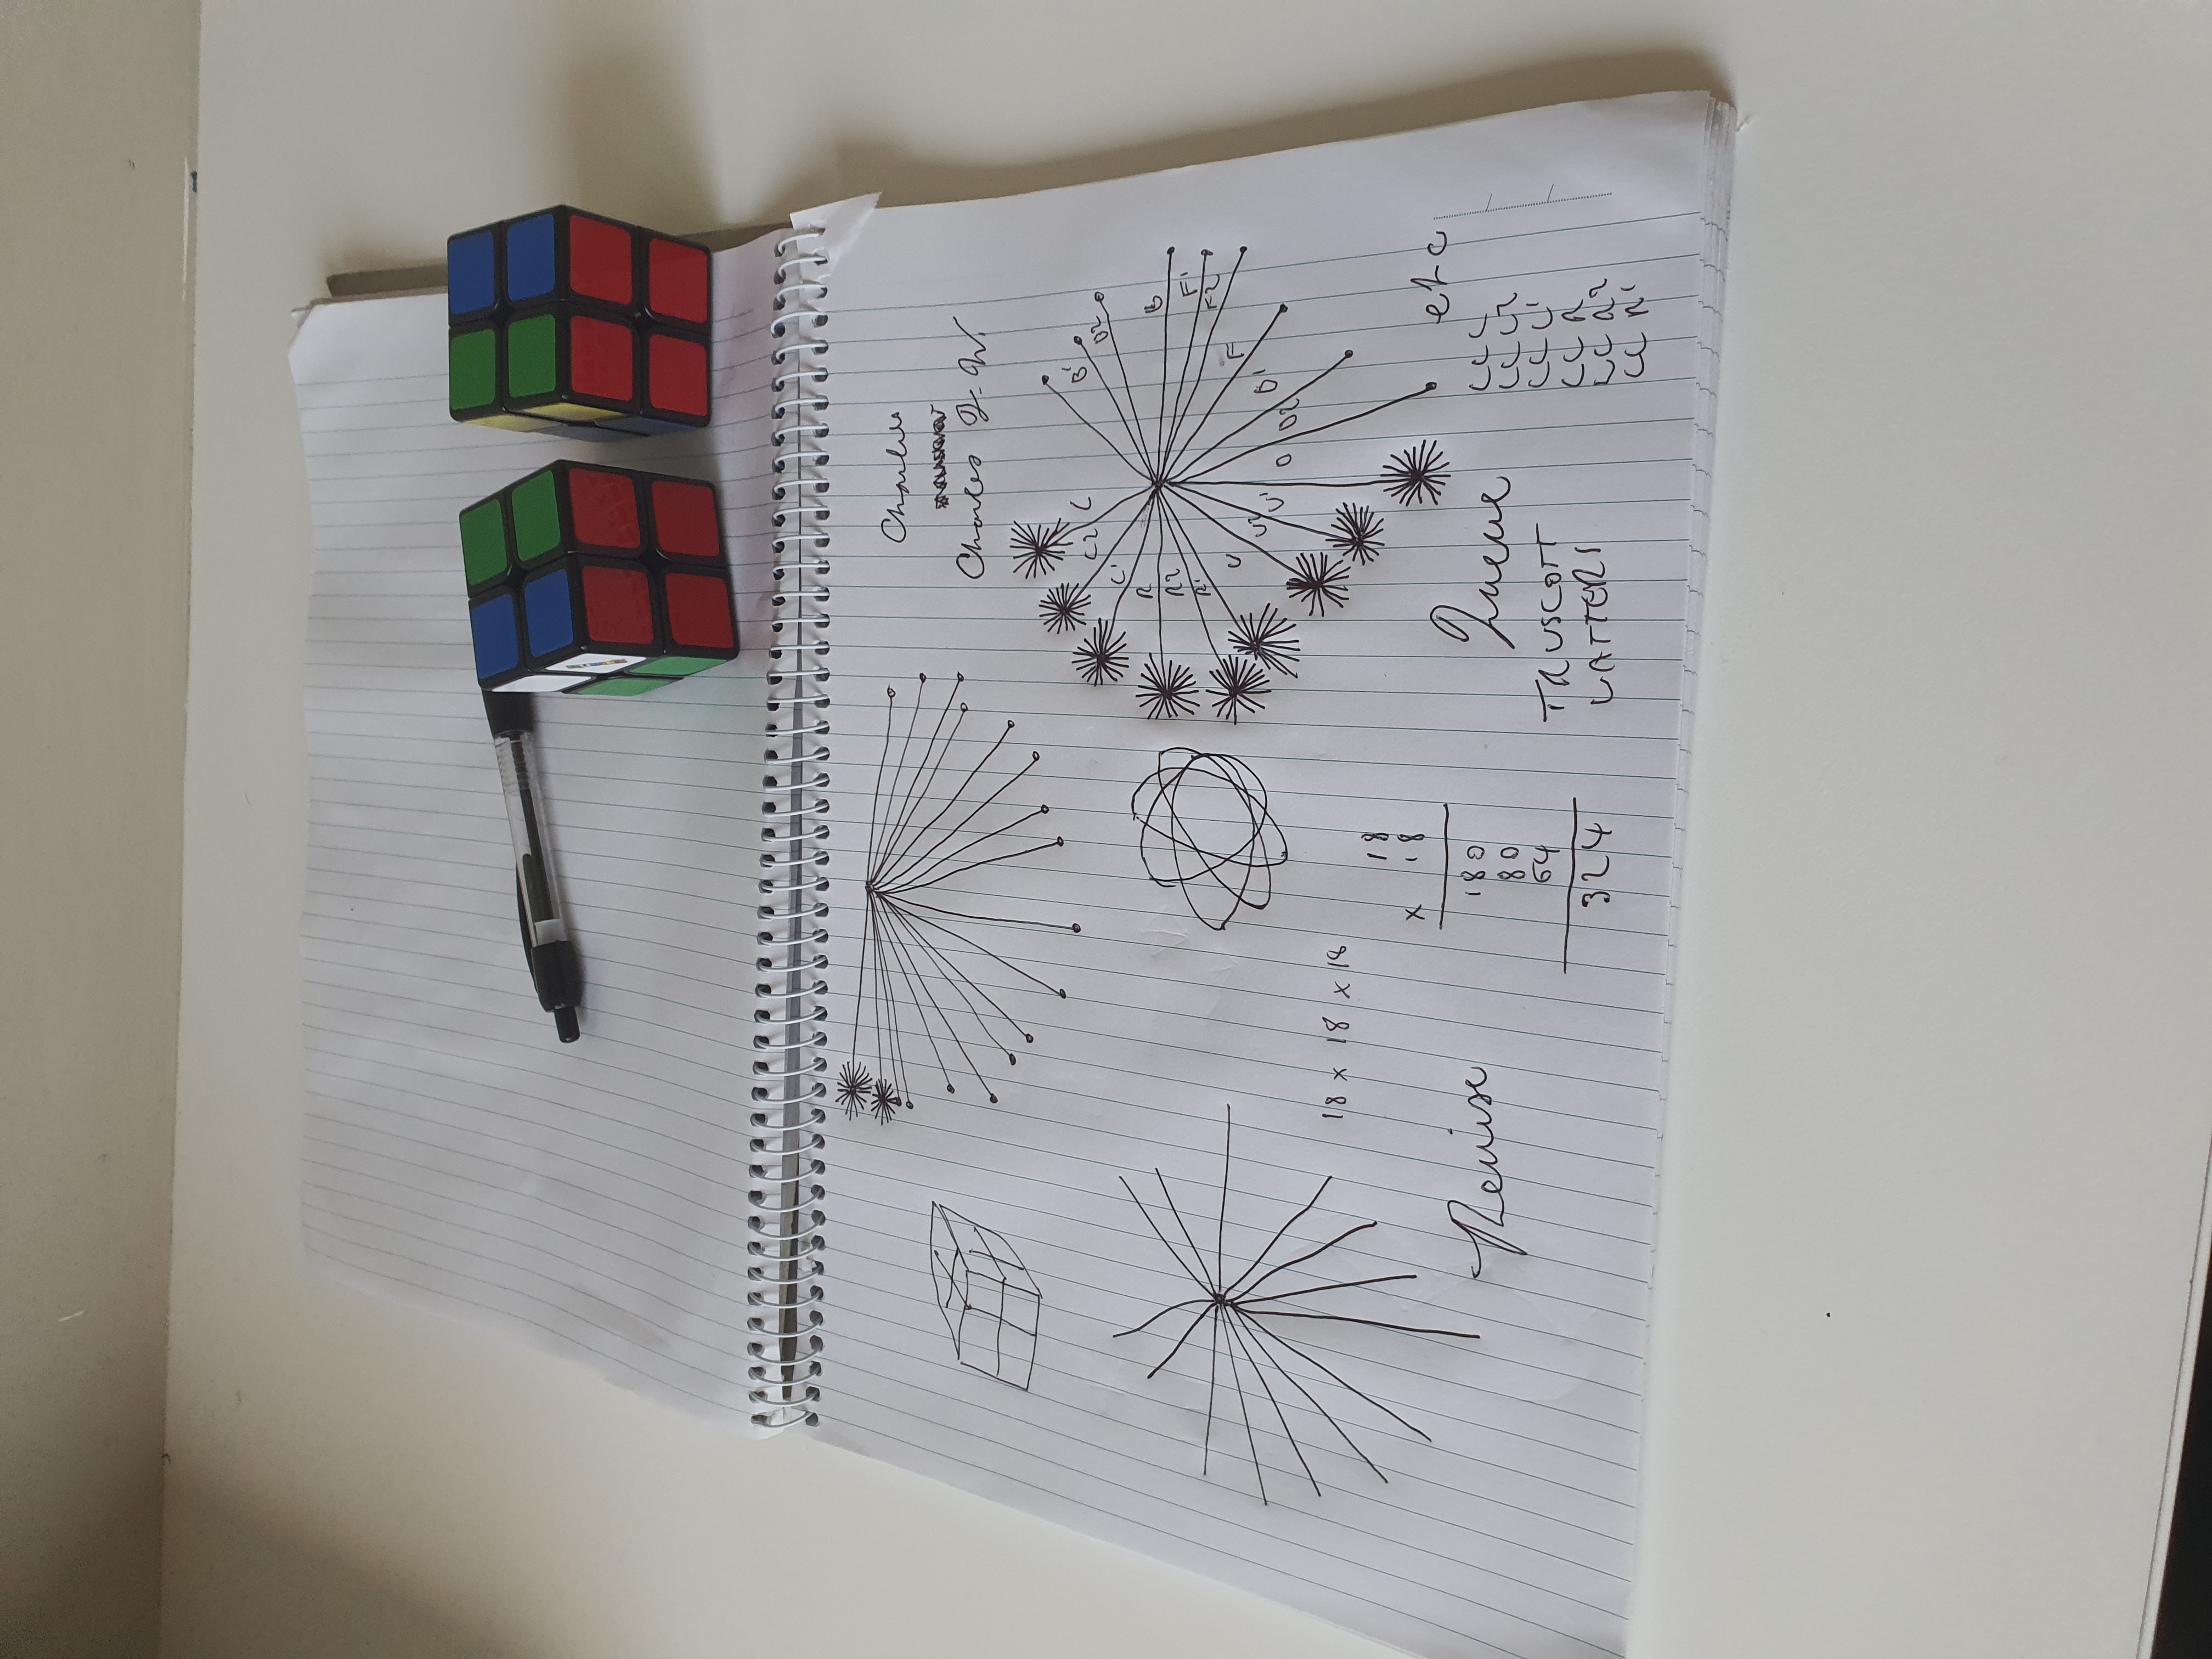 Charles
Charles J. W.
L
L2
L'
R
R2
R'
U
U2
U'
D
D2
D'
F
F2
F'
B
B2
B'
18 x 18 x 18
18
x 18
180
80
64
324
Revise
Queue
TRUSCOTT
LATTERS
etc
LLL
LLL2
LLL'
LLR
LLR2
LLR'